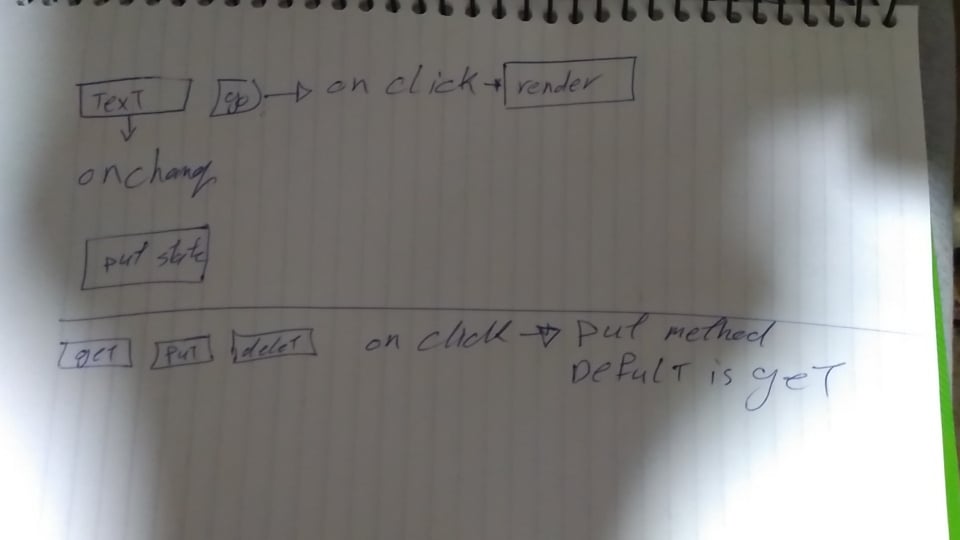 TexT go on click render
onchang
put state
geT PuT deleT on click put method
Defult is geT